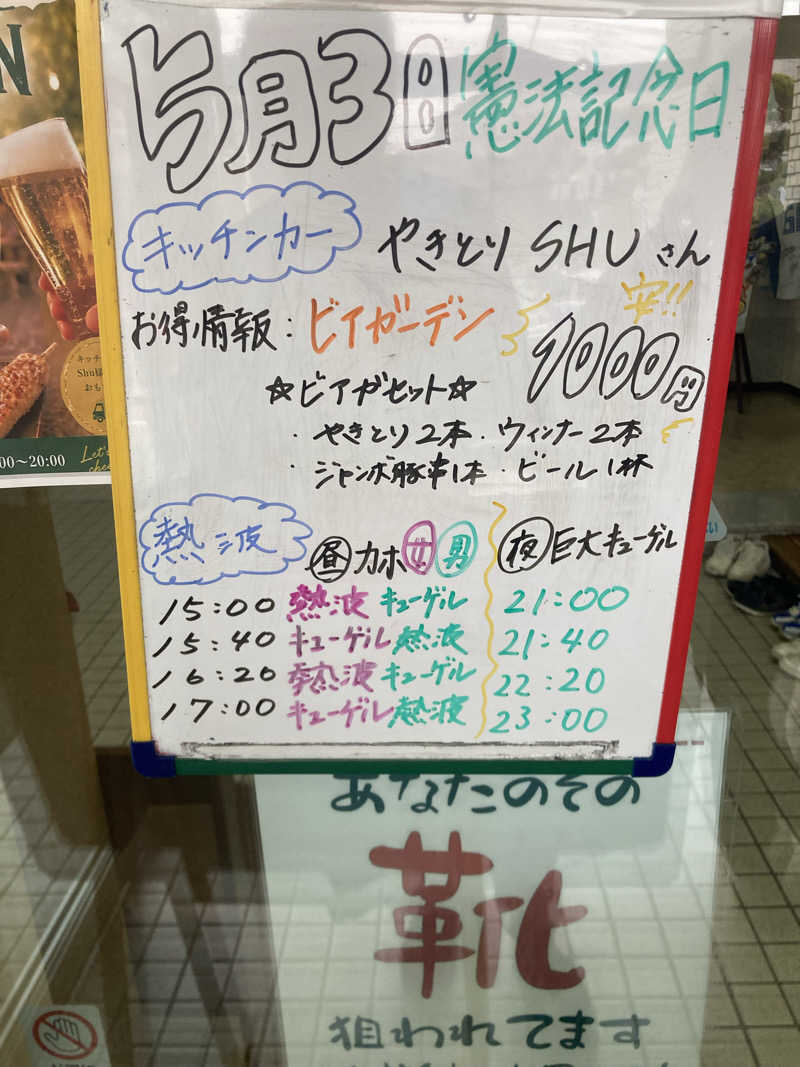 5月3日 憲法記念日
キッチンカー やきとり SHU さん
お得情報：ビアガーデン 安!!
1000円
☆ビアガセット☆
・やきとり2本・ウィンナー2本
・ジャンボ豚串1本・ビール1杯
熱波 昼 カホ 女 男 夜 巨大キューゲル
15:00 熱波 キューゲル 21:00
15:40 キューゲル 熱波 21:40
16:20 熱波 キューゲル 22:20
17:00 キューゲル 熱波 23:00
N
キッチ
Shu
おも
00〜20:00
Let's
chee
あなたのその
靴
狙われてます